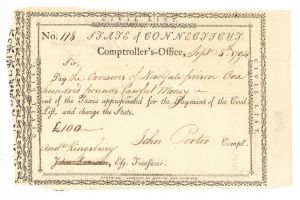 CIVIL LIST.
No. 118 STATE of CONNECTICUT.
Comptroller's-Office, Sept 5th 1794
Sir,
Pay the Overseers of Newgate prison One
hundred pounds Lawful Money
out of the Taxes appropriated for the Payment of the Civil
List, and charge the State.
£100
John Porter Compt.
And. Kingsbury
Esq. Treasurer.
CIVIL LIST.